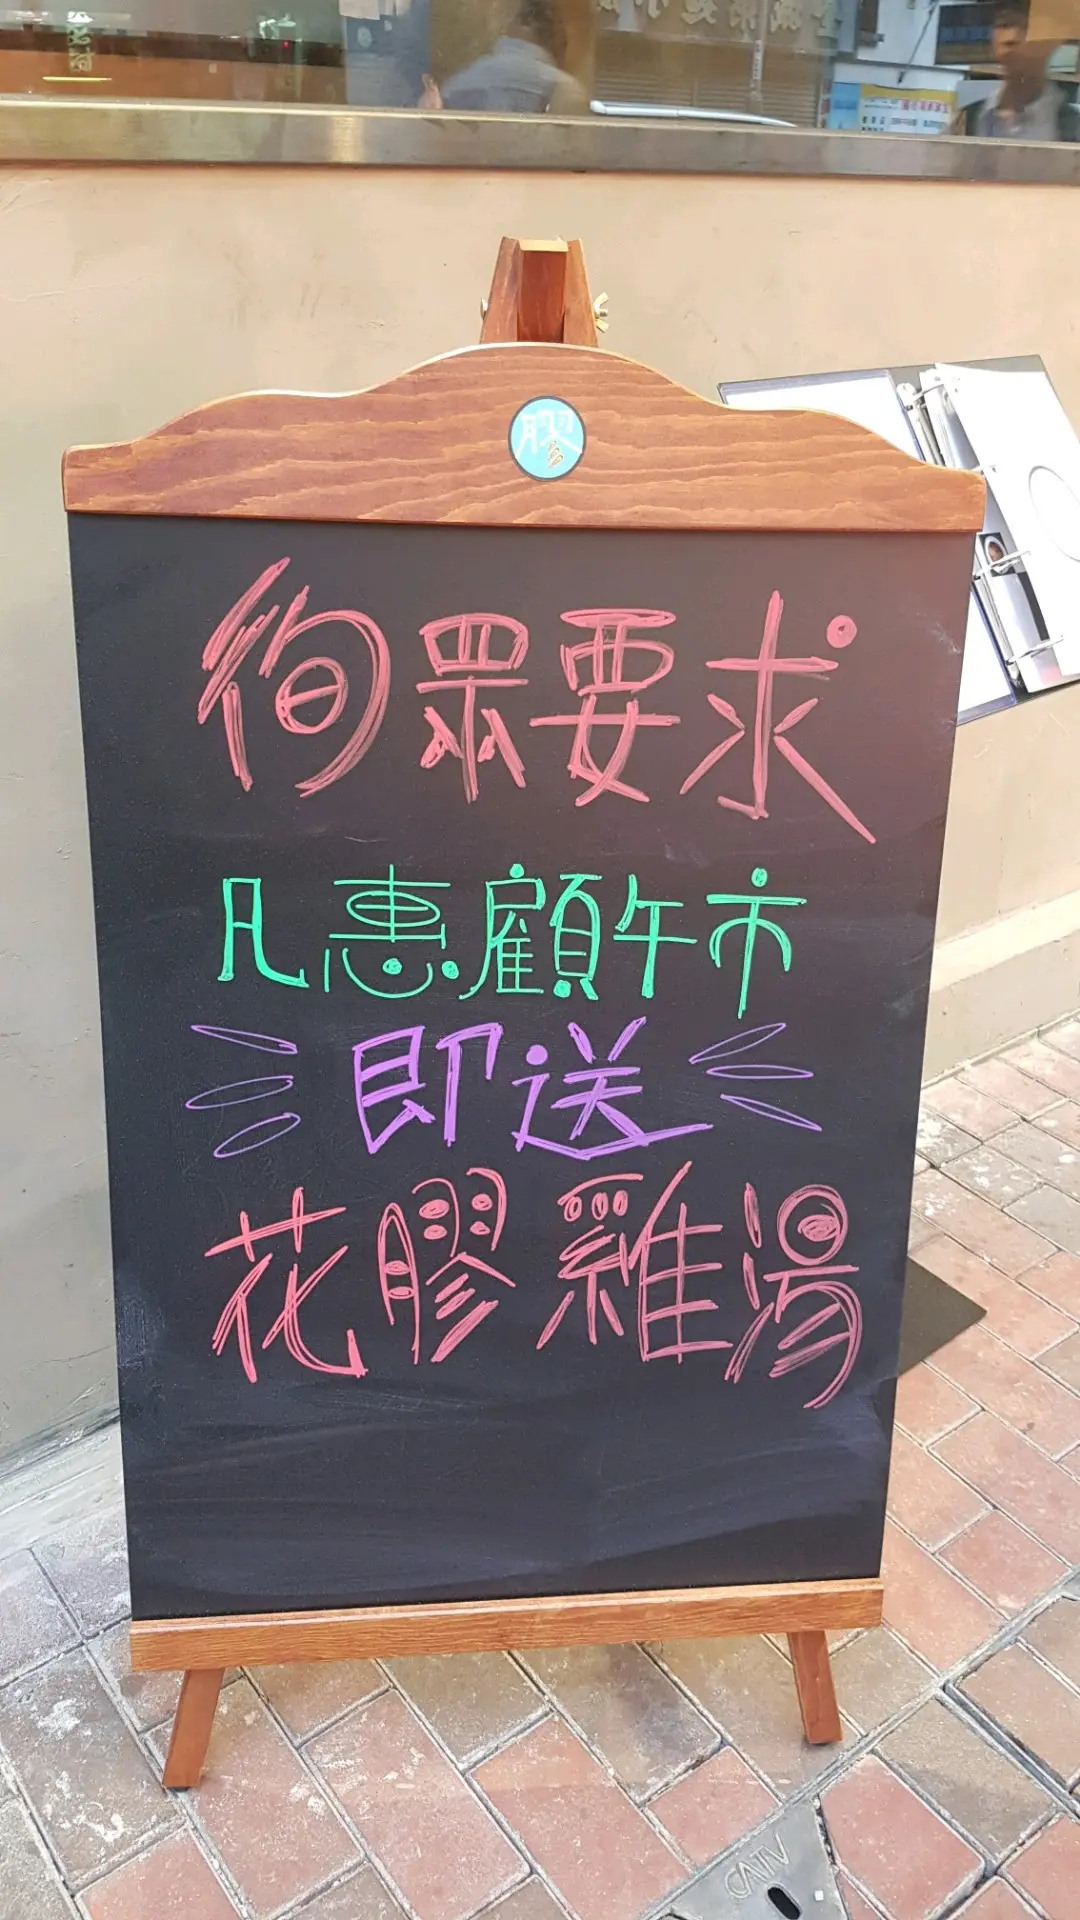 膠
徇眾要求
凡惠顧午市
即送
花膠雞湯
CATV